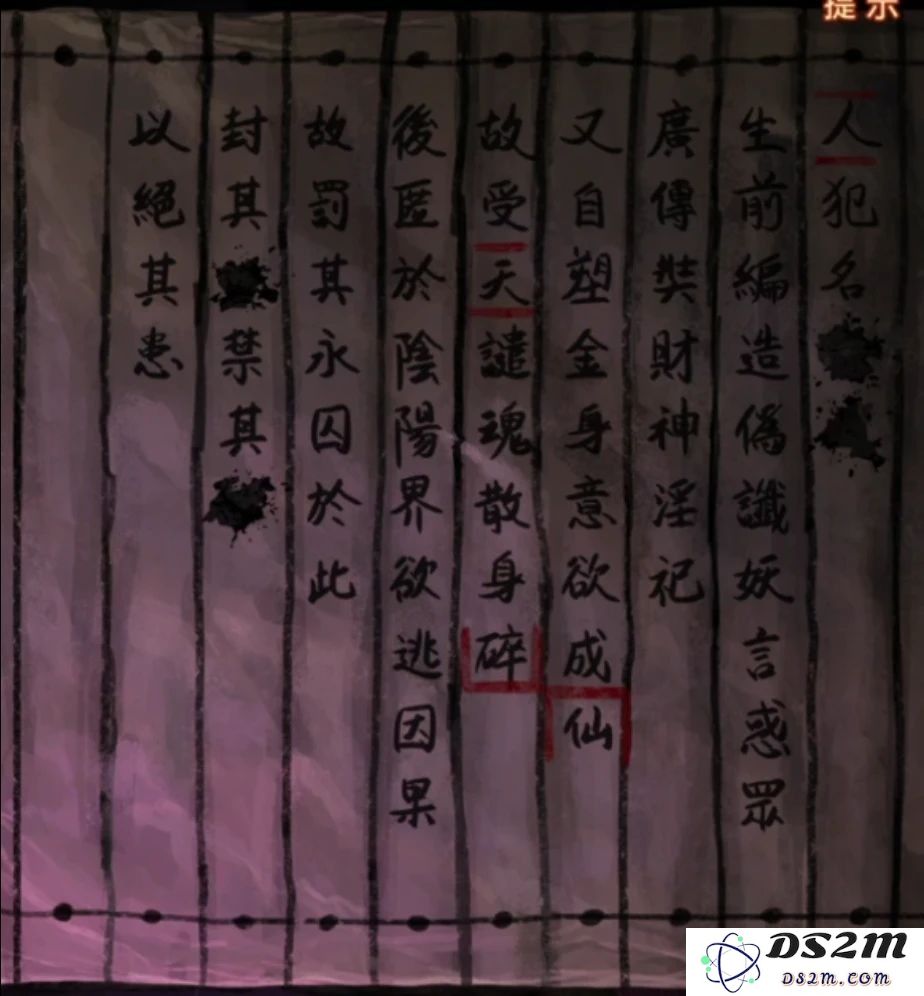 提示
人犯名
生前編造偽讖妖言惑眾
廣傳奘財神淫祀
又自塑金身意欲成仙
故受天譴魂散身碎
後匿於陰陽界欲逃因果
故罰其永囚於此
封其禁其
以絕其患
DS2M
DS2M.COM